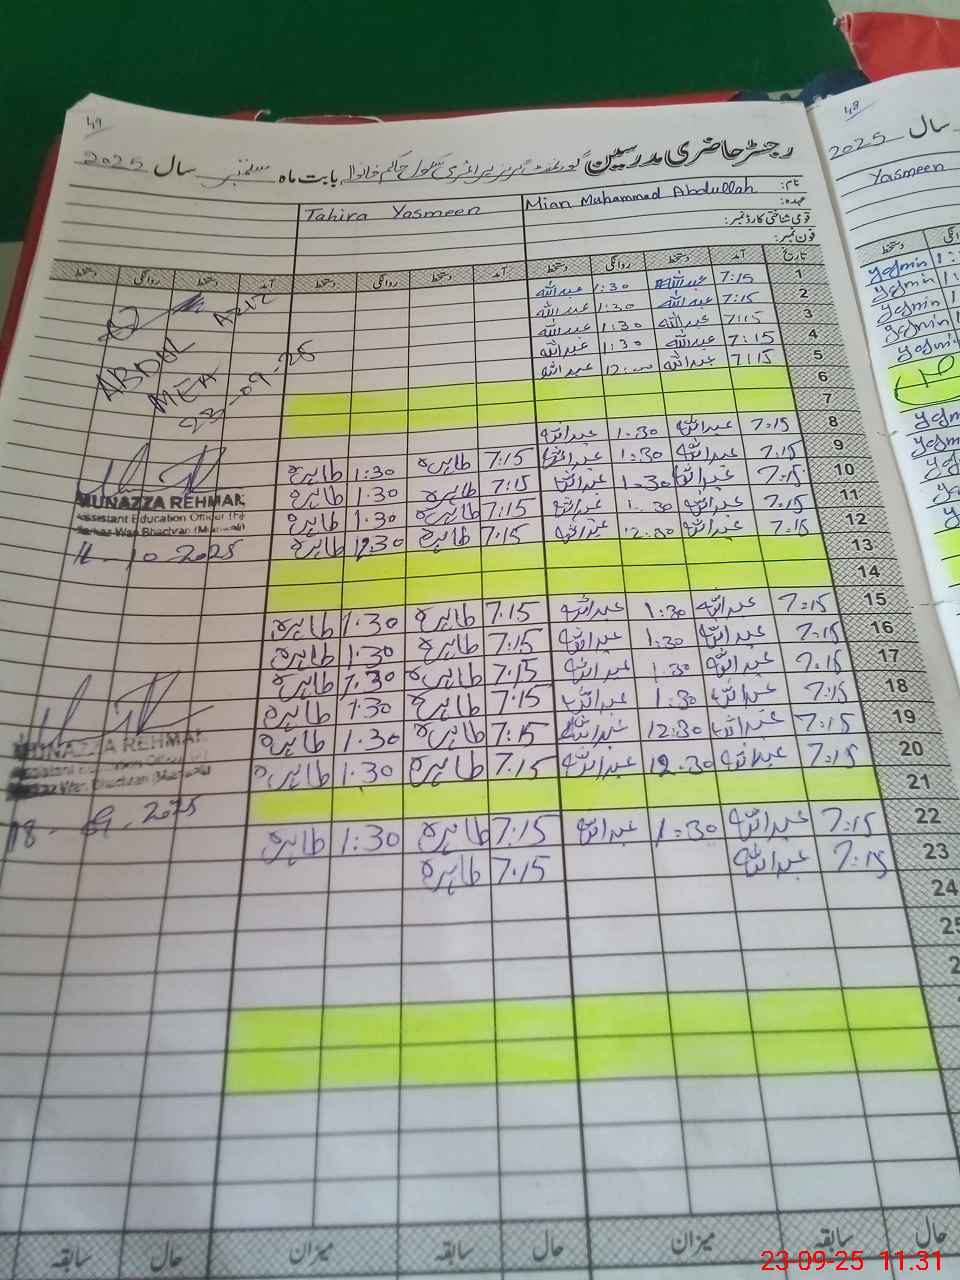 49
رجسٹر حاضری مدرسین گورنمنٹ گرلز پرائمری سکول حاکم خانوالہ بابت ماہ ستمبر سال 2025
نام: Mian Muhammad Abdullah Tahira Yasmeen
عہدہ:
قومی شناختی کارڈ نمبر:
فون نمبر:
تاریخ آمد دستخط روانگی دستخط آمد دستخط روانگی دستخط آمد دستخط روانگی دستخط
1 7:15 عبداللہ 1:30 عبداللہ
2 7:15 عبداللہ 1:30 عبداللہ
3 7:15 عبداللہ 1:30 عبداللہ
4 7:15 عبداللہ 1:30 عبداللہ
5 7:15 عبداللہ 12:00 عبداللہ
6
7
8 7:15 عبداللہ 1:30 عبداللہ
9 7:15 عبداللہ 1:30 عبداللہ 7:15 طاہرہ 1:30 طاہرہ
10 7:15 عبداللہ 1:30 عبداللہ 7:15 طاہرہ 1:30 طاہرہ
11 7:15 عبداللہ 1:30 عبداللہ 7:15 طاہرہ 1:30 طاہرہ
12 7:15 عبداللہ 12:30 عبداللہ 7:15 طاہرہ 12:30 طاہرہ
13
14
15 7:15 عبداللہ 1:30 عبداللہ 7:15 طاہرہ 1:30 طاہرہ
16 7:15 عبداللہ 1:30 عبداللہ 7:15 طاہرہ 1:30 طاہرہ
17 7:15 عبداللہ 1:30 عبداللہ 7:15 طاہرہ 1:30 طاہرہ
18 7:15 عبداللہ 1:30 عبداللہ 7:15 طاہرہ 1:30 طاہرہ
19 7:15 عبداللہ 12:30 عبداللہ 7:15 طاہرہ 1:30 طاہرہ
20 7:15 عبداللہ 12:30 عبداللہ 7:15 طاہرہ 1:30 طاہرہ
21
22 7:15 عبداللہ 1:30 عبداللہ 7:15 طاہرہ 1:30 طاہرہ
23 7:15 عبداللہ 7:15 طاہرہ
24
25
حال سابقہ میزان حال سابقہ میزان حال سابقہ
ABDUL AZIZ
MEA
23-09-25
MUNAZZA REHMAN
Assistant Education Officer
Bhachran (Mianwali)
11-10-2025
MUNAZZA REHMAN
Assistant Education Officer
Bhachran (Mianwali)
18-09-2025
48
سال 2025
Yasmeen
23-09-25 11.31